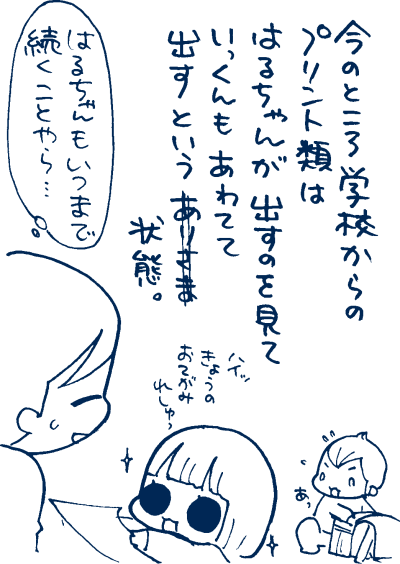 今のところ学校からの
プリント類は
はるちゃんが出すのを見て
いっくんもあわてて
出すというありさま
状態。
はるちゃんもいつまで
続くことやら…
ハイッ
きょうの
おてがみ
れしゅっ
あっ